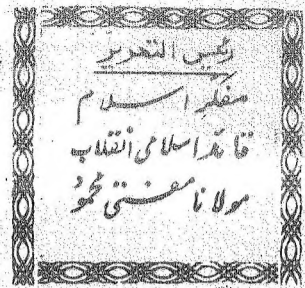 رئیس التحریر
مفکر اسلام
قائد اسلامی انقلاب
مولانا مفتی محمود